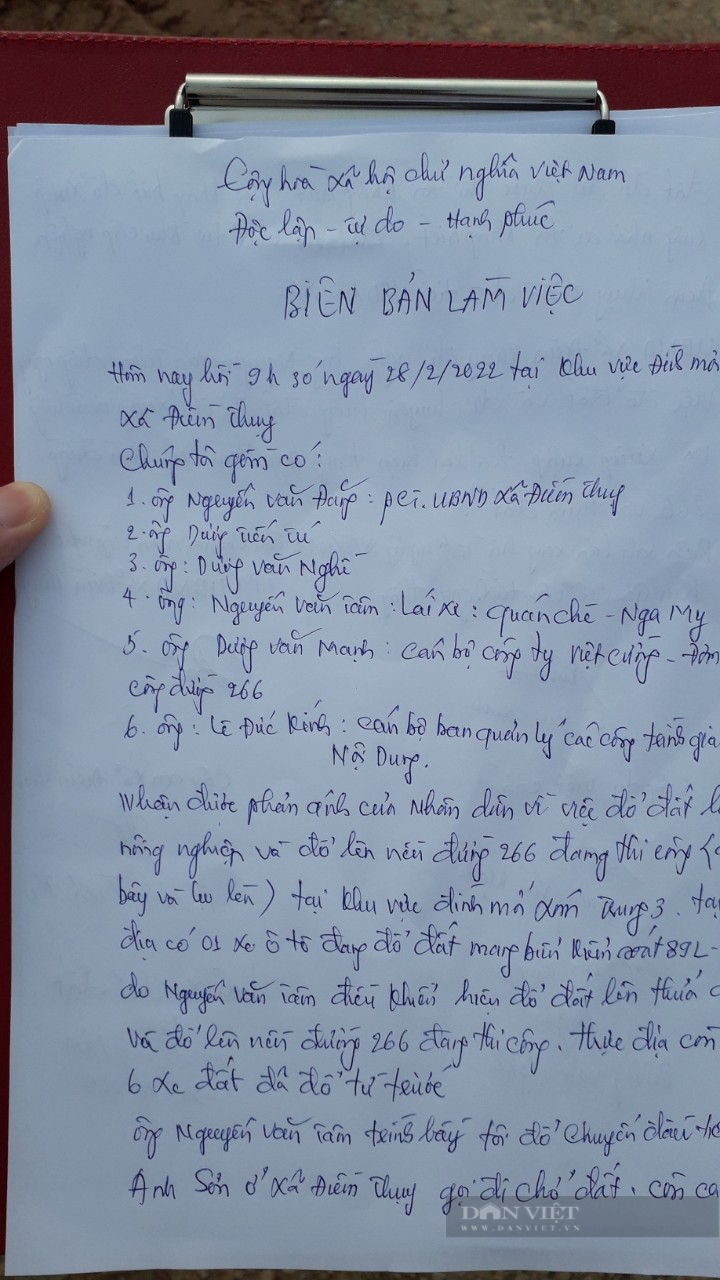 Cộng hoà xã hội chủ nghĩa Việt Nam
Độc lập - Tự do - Hạnh phúc
BIÊN BẢN LÀM VIỆC
Hôm nay hồi 9h 30 ngày 28/2/2022 tại khu vực Đình mả
xã Điềm Thụy
Chúng tôi gồm có:
1. ông Nguyễn Văn Đang: PCT. UBND xã Điềm Thụy
2. ông Dương Tiến Tú
3. ông: Dương Văn Nghĩ
4. ông: Nguyễn Văn Tâm: Lái xe: Quán chè - Nga My
5. ông Dương Văn Mạnh: cán bộ công ty Việt Cường - Đơn
công đường 266
6. ông: Lê Đức Kính: cán bộ ban quản lý các công trình gia
Nội Dung.
Nhận được phản ánh của nhân dân về việc đổ đất l
nông nghiệp và đổ lên nền đường 266 đang thi công (
bây và lu lèn) tại khu vực đình mả xóm Trung 3. tạ
địa có 01 xe ô tô đang đổ đất mang biển kiểm soát 89L-
do Nguyễn Văn Tâm điều khiển hiện đổ đất lên thuả
và đổ lên nền đường 266 đang thi công. thực địa còn
6 xe đất đã đổ từ trước
ông Nguyễn Văn Tâm trình bày tôi đổ chuyến đầu
Anh Sơn ở xã Điềm Thụy gọi đi chở đất. còn ca
DÂN VIỆT
WWW.DANVIET.VN